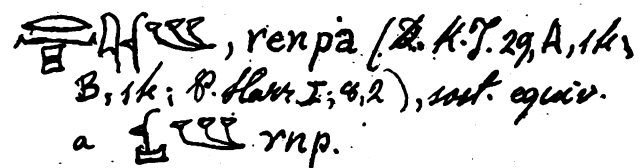 , renpȧ (D. H. T. 29, A, 1k,
B, 1k; P. Harr. I; 8, 2), sost. equiv.
a rnp.